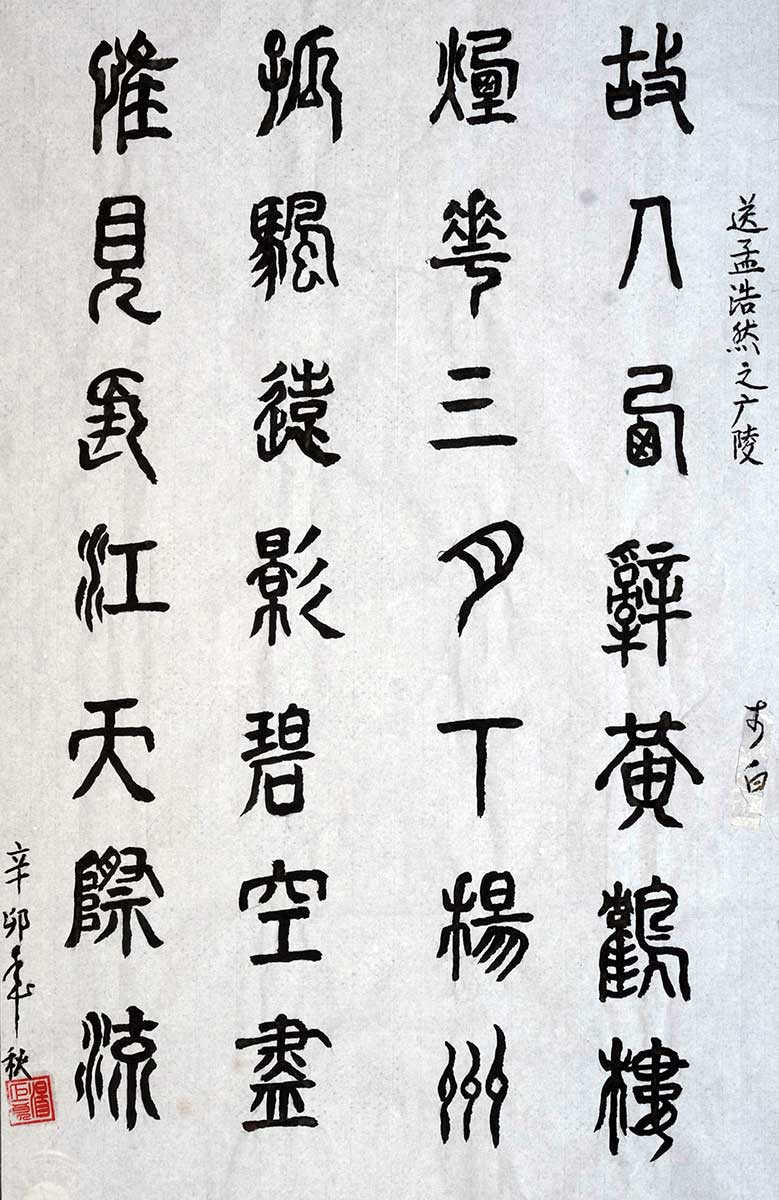 送孟浩然之广陵 李白
故人西辭黃鶴樓
煙華三月下楊州
孤颿遠影碧空盡
惟見長江天際流
辛卯年秋